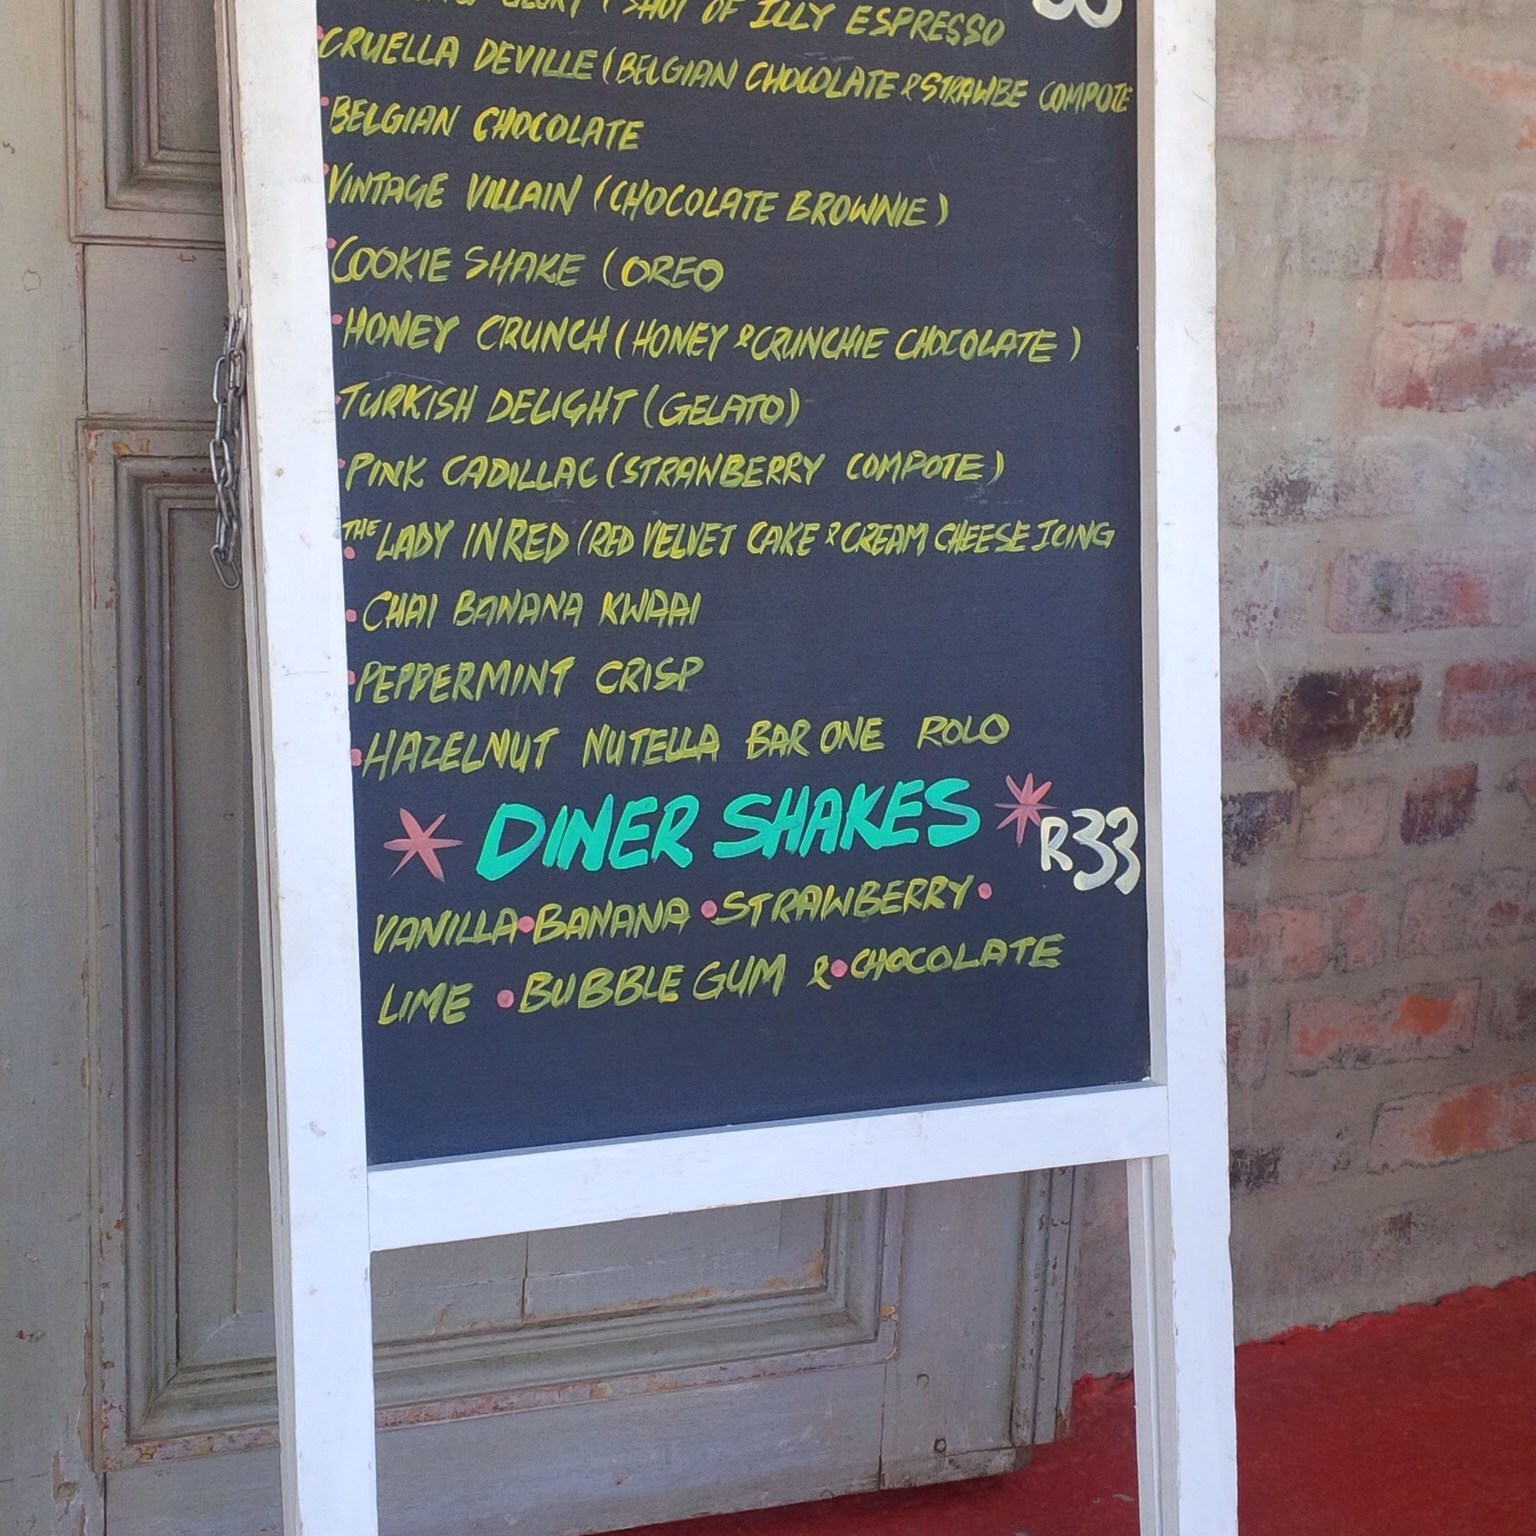 SHOT OF ILLY ESPRESSO
CRUELLA DEVILLE (BELGIAN CHOCOLATE & STRAWBE COMPOTE
BELGIAN CHOCOLATE
VINTAGE VILLAIN (CHOCOLATE BROWNIE)
COOKIE SHAKE (OREO
HONEY CRUNCH (HONEY & CRUNCHIE CHOCOLATE)
TURKISH DELIGHT (GELATO)
PINK CADILLAC (STRAWBERRY COMPOTE)
THE LADY IN RED (RED VELVET CAKE & CREAM CHEESE ICING
CHAI BANANA KWAAI
PEPPERMINT CRISP
HAZELNUT NUTELLA BAR ONE ROLO
DINER SHAKES R33
VANILLA • BANANA • STRAWBERRY •
LIME • BUBBLE GUM & • CHOCOLATE